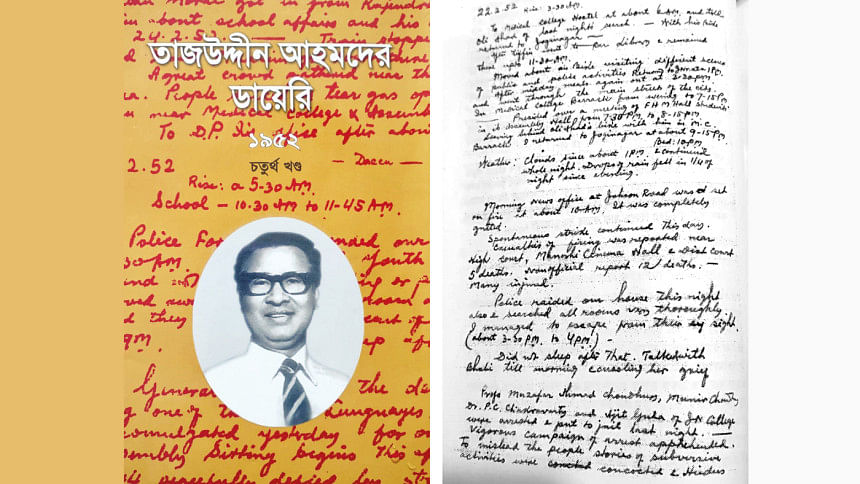 in about school affairs and his
24.2.52 — Train stoppe
তাজউদ্দীন আহমদের
ডায়েরি
A great crowd gathered near the
People tear gas op
near Medical College & Assemb
To D.P. I's office after abou
১৯৫২
চতুর্থ খণ্ড
— Dacca —
2.52
Rise: a 5-30 AM.
School — 10.30 AM to 11-45 AM.
Police For nded our
30 PM. Youth
General the da
g one of the Languages
romulgated yesterday for o
embly Sitting begins this af
peacefully defied
22.2.52 Rise: 3-30 AM.
To Medical College Hostel at about 6 AM. and till
Oli Ahad of last night's search. — With his bike
returned to Joginagar —
After tiffin went to Bar Library & remained
there upto 11-30 AM.
Moved about on bike visiting different scenes
of Public and police activities Returned to Jog. at 1 PM.
After midday meals again out at 2-30 PM
and went through the main streets of the city.
In Medical College Barrack from evening to 7-15 PM
— Presided over a meeting of F H M Hall students
in its Assembly Hall from 7-30 PM to 8-15 PM.
Leaving behind Oli Ahad's bike with him in M.C.
Barracks I returned to Joginagar at about 9-15 PM
Bed: 10 PM
Weather: Clouds since about 1 PM & continued
whole night. Drops of rain fell in 1/4 of
night since evening.
Morning News office at Johnson Road was set
on fire at about 10 AM. It was completely
gutted.
Spontaneous strike continued this day.
Casualties of firing was reported near
High Court, Manoshi Cinema Hall & Dist Court
5 deaths. Unofficial report 12 deaths. —
Many injured.
Police raided our house this night
also & searched all rooms very thoroughly
I managed to escape from their sight.
(about 3-30 PM. to 4 PM.) —
Did not sleep after that. Talked with
Bhabi till morning consoling her grief
Profs Muzafar Ahmad Choudhury, Munir Chowdhury
Dr. P.C. Chakravarty and Ajit Guha of J.N College
were arrested & put to jail last night. —
Vigorous campaign of arrest apprehended.
To mislead the people stories of subversive
activities were concocted & Hindus